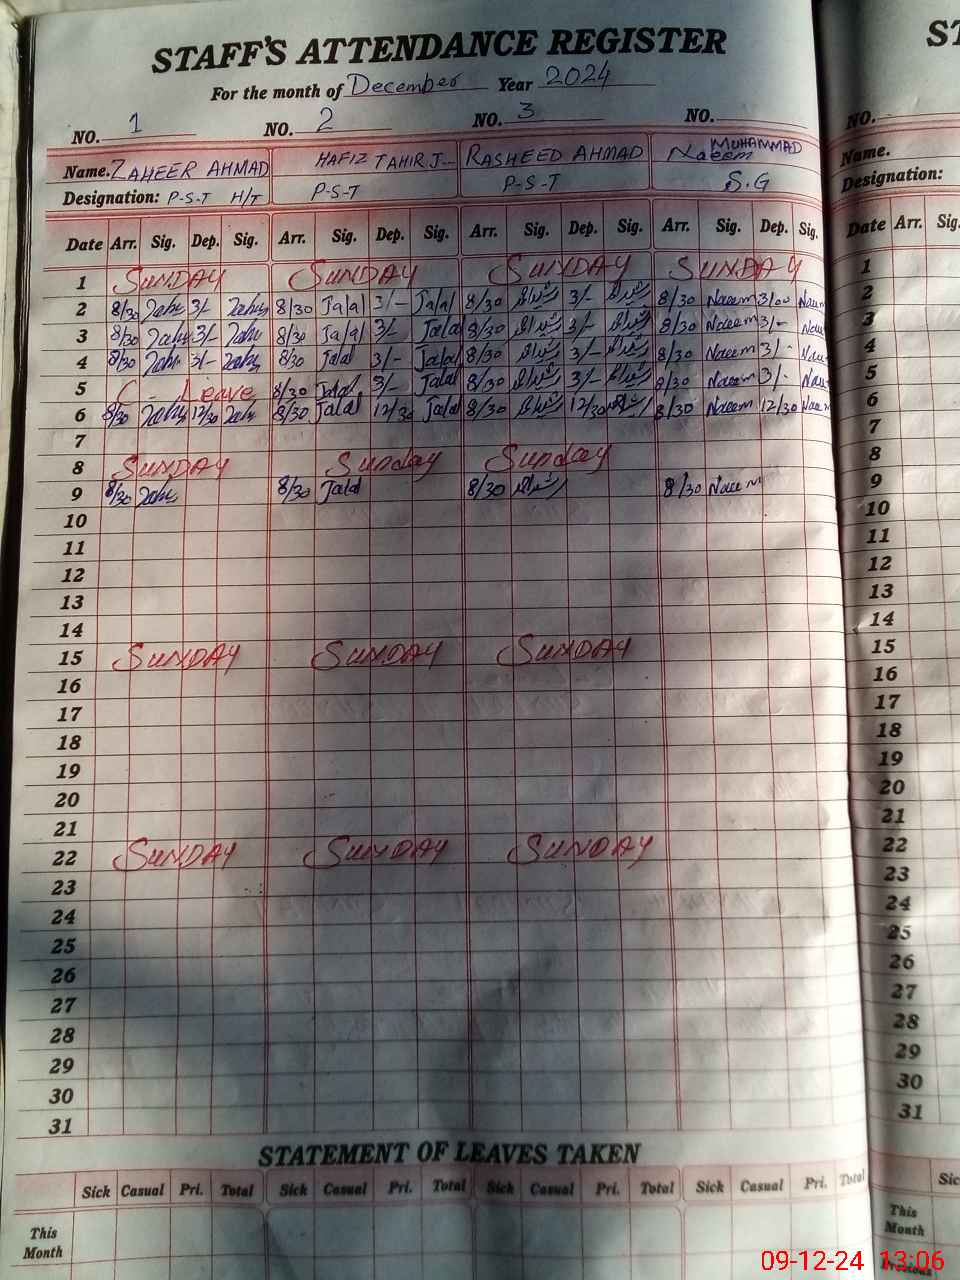 STAFF'S ATTENDANCE REGISTER ST
For the month of December Year 2024
NO. 1 NO. 2 NO. 3 NO. NO.
Name. ZAHEER AHMAD HAFIZ TAHIR J RASHEED AHMAD MUHAMMAD Naeem Name.
Designation: P-S-T H/T P-S-T P-S-T S.G Designation:
Date Arr. Sig. Dep. Sig. Arr. Sig. Dep. Sig. Arr. Sig. Dep. Sig. Arr. Sig. Dep. Sig. Date Arr. Sig.
1 SUNDAY SUNDAY SUNDAY SUNDAY 1
2 8/30 3/- 8/30 Jalal 3/- Jalal 8/30 3/- 8/30 Naeem 3/00 2
3 8/30 3/- 8/30 Jalal 3/- Jalal 8/30 3/- 8/30 Naeem 3/- 3
4 8/30 3/- 8/30 Jalal 3/- Jalal 8/30 3/- 8/30 Naeem 3/- 4
5 Leave 8/30 Jalal 3/- Jalal 8/30 3/- 8/30 Naeem 3/- 5
6 8/30 12/30 8/30 Jalal 12/30 Jalal 8/30 12/30 8/30 Naeem 12/30 6
7 7
8 SUNDAY Sunday Sunday 8
9 8/30 8/30 Jalal 8/30 8/30 Naeem 9
10 10
11 11
12 12
13 13
14 14
15 SUNDAY SUNDAY SUNDAY 15
16 16
17 17
18 18
19 19
20 20
21 21
22 SUNDAY SUNDAY SUNDAY 22
23 23
24 24
25 25
26 26
27 27
28 28
29 29
30 30
31 31
STATEMENT OF LEAVES TAKEN
Sick Casual Pri. Total Sick Casual Pri. Total Sick Casual Pri. Total Sick Casual Pri. Total Sic
This Month This Month
09-12-24 13:06